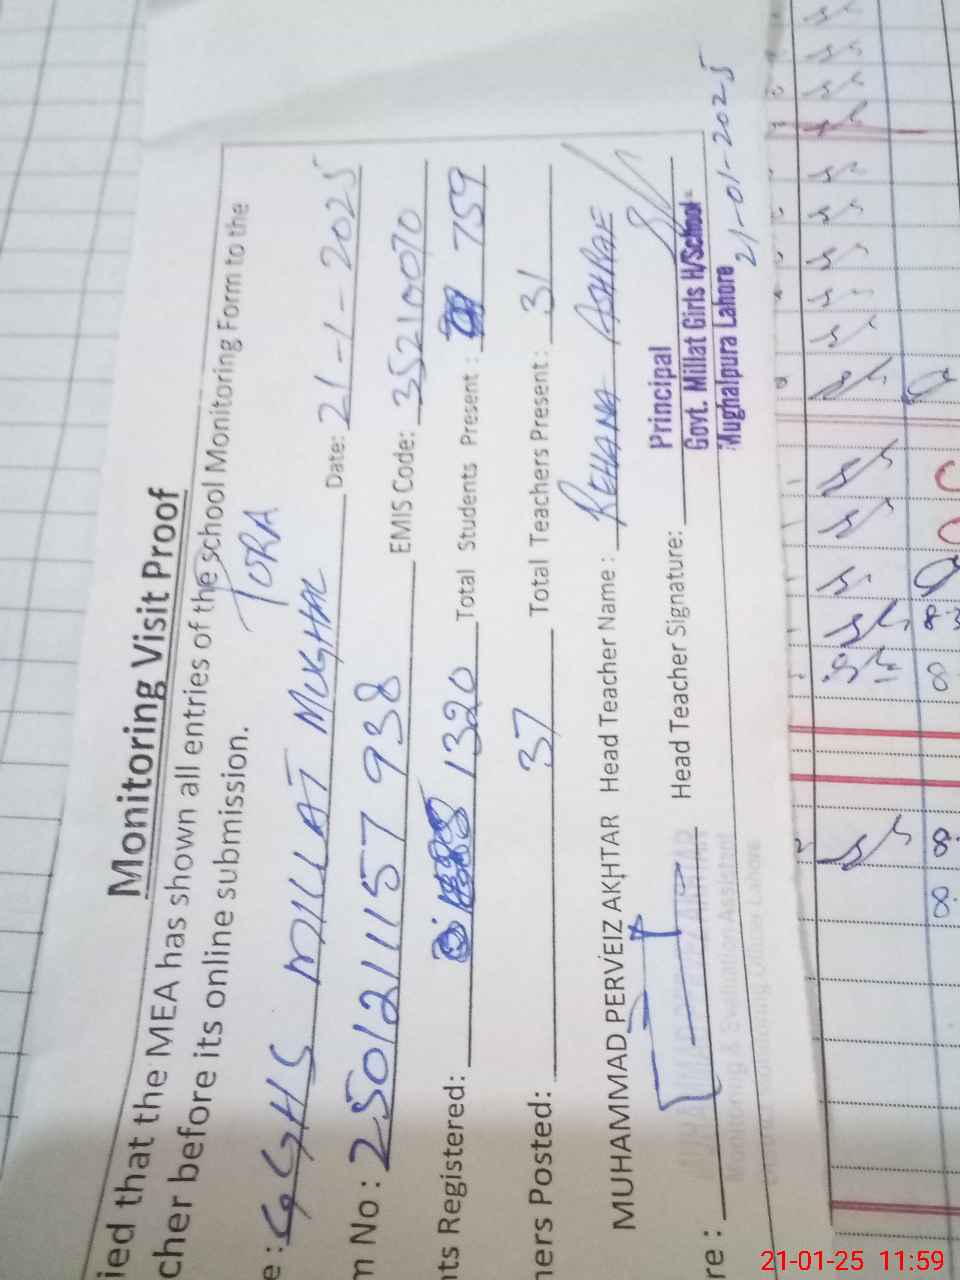 Monitoring Visit Proof
ied that the MEA has shown all entries of the school Monitoring Form to the
cher before its online submission.
e : GGHS MILLAT MUGHAL PURA Date: 21-1-2025
m No : 2501211157938 EMIS Code: 35210070
nts Registered: 1320 Total Students Present : 759
hers Posted: 37 Total Teachers Present : 31
MUHAMMAD PERVEIZ AKHTAR Head Teacher Name : REHANA ASHRAF
re : Head Teacher Signature:
Principal
Govt. Millat Girls H/School
Mughalpura Lahore
21-01-2025
Monitoring & Evaluation Assistant
21-01-25 11:59